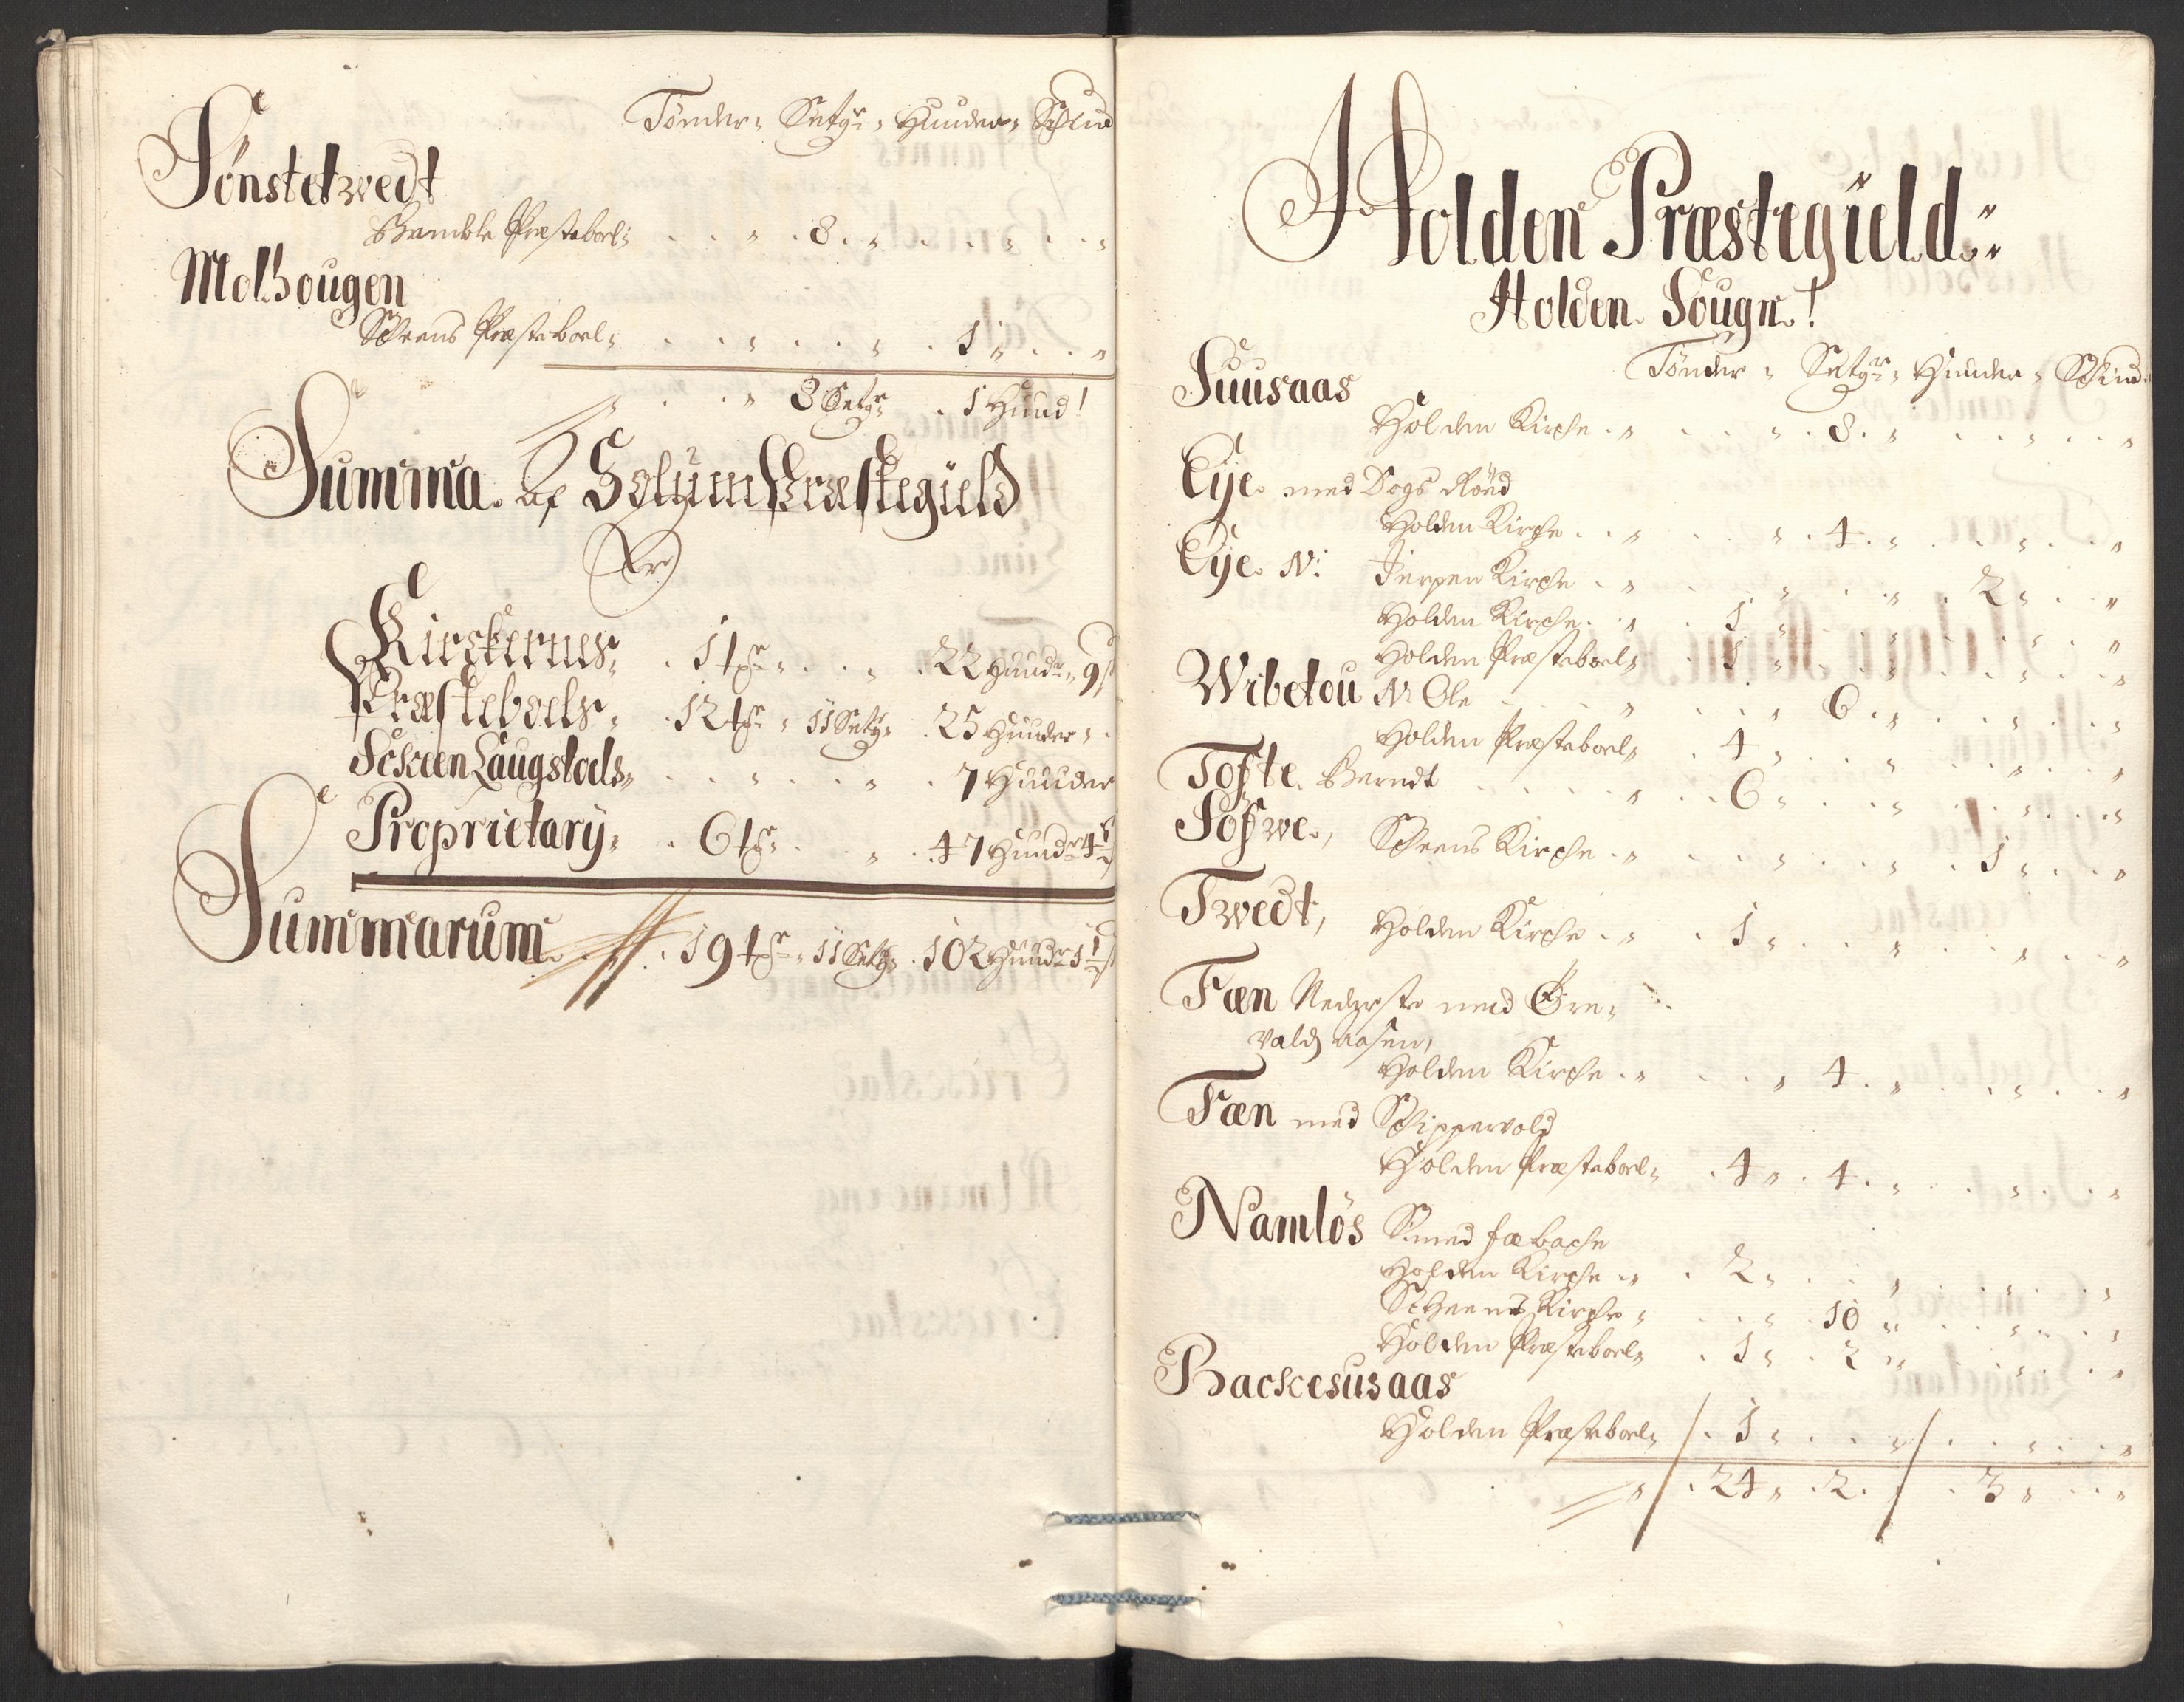 Tønder, Setgr, Hunder, Schind
Tönstetwedt
Bamble Præsteboel, . . „ . 8. „ . . . „ . . „
Molhougen
Scheens Præsteboel, . . „ . . . „ . 1 „ . . „
„ . . „ 8 Setgr . 1 Hund!
Summa. Af Solum Præstegield
Er
Kirckernes, . 1 tdr „ . . „ . 22 Hundr „ 9 s
Præsteboels, . 12 tdr „ 11 Setg„ . 25 Hunder „ .
Scheen Laugstols, . . „ . . „ . 7 Hunder
Proprietary, . 6 tdr . . „ . 47 Hundr 4½
Summarum . 19 tdr „ 11 Setg„ . 102 Hundr 1½ s
Holden Præstegield:
Holden. Sougn!
Tønder „ Setgr „ Hunder „ Schind.
Suusaas
Holden Kirche . „ . . „ . 8 . „ . . „ . . „
Eye. med Dogs Röed
Holden Kirche . . „ . . „ . 4 . „ . . „ . . „
Eye. N: Jerpen Kirche . „ . . „ . . „ . 2 „ . . „
Holden Kirche . . „ . 1 „ . . „ . . „ . . „
Holden Præsteboel, . 1 „ . . „ . . „ . . „
Wibetou N: Ole . . . „ . . „ 6 . „ . . „ . . „
Holden Præsteboel, . 4 „ . . . „ . . „ . . „
Tofte. Berndt . . . . „ . . 6 „ . . „ . . „ . . „
Söfwe, Scheens Kirche . „ . . „ . . „ . 1 „ . . „
Twedt, Holden Kirche . „ . 1 „ . . „ . . „ . . „
Fæn Nederste med Gre„
valds aasen,
Holden Kirche . „ . . „ 4 . „ . . „ . . „
Fæn med Schippervold
Holden Præsteboel, . 4 „ . 4 . „ . . „ . . „
Namlös S. med fæbache
Holden Kirche . „ . 2 „ . . „ . . „ . . „
Scheens Kirche „ . . „ . 10 „ . . „ . . „
Holden Præsteboel, . 1 „ . 2 „ . . „ . . „
Backesusaas
Holden Præsteboel, . 1 „ . . „ . . „ . . „
„ . 24 „ . 2 . . 3 „ . . „